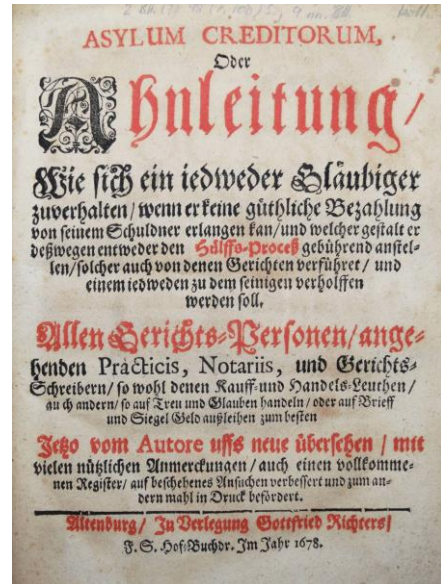 ASYLUM CREDITORUM,
Oder
Anleitung/
Wie sich ein iedweder Gläubiger
zuverhalten/ wenn er keine güthliche Bezahlung
von seinem Schuldner erlangen kan/ und welcher gestalt er
deßwegen entweder den Hülffs-Proceß gebührend anstel-
len/ solcher auch von denen Gerichten verführet/ und
einem iedweden zu dem seinigen verholffen
werden soll.
Allen Gerichts-Personen/ ange-
henden Prácticis, Notariis, und Gerichts-
Schreibern/ so wohl denen Kauff- und Handels-Leuthen/
auch andern/ so auf Treu und Glauben handeln/ oder auf Brieff
und Siegel Geld außleihen zum besten
Jetzo vom Autore uffs neue übersehen/ mit
vielen nützlichen Anmerckungen/ auch einen vollkomme-
nen Register/ auf beschehenes Ansuchen verbessert und zum an-
dern mahl in Druck befördert.
Altenburg/ In Verlegung Gottfried Richters/
F. S. Hof-Buchdr. Im Jahr 1678.